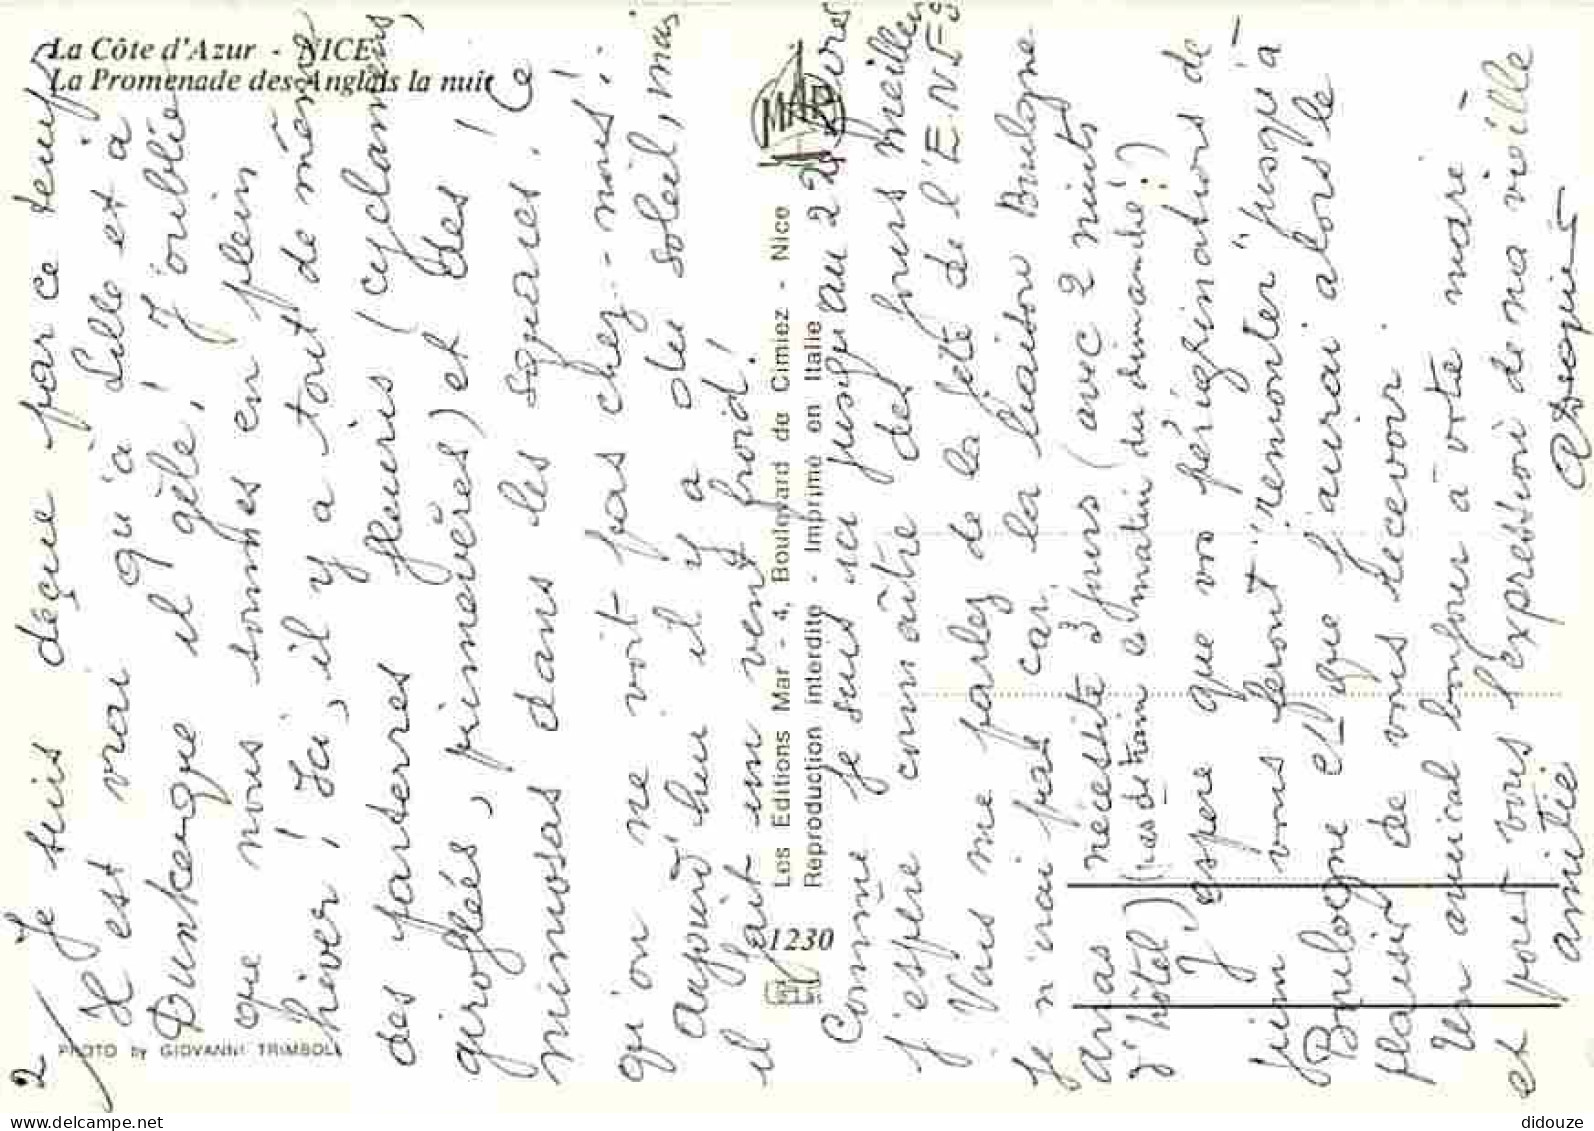 La Côte d'Azur - NICE
La Promenade des Anglais la nuit
2/ Je suis déçue par ce temps
Il est vrai qu'à Lille et à
Dunkerque il gèle! J'oublie
que nous sommes en plein
hiver! Ici, il y a tout de même
des parterres fleuris (cyclamens,
giroflées, primevères) et des
mimosas dans les squares! Ce
qu'on ne voit pas chez-nous!
Aujourd'hui il y a du soleil, mais
il fait un vent froid!
1230
Les Editions Mar - 4, Boulevard de Cimiez - Nice
Reproduction interdite - Imprimé en Italie
MAR
PHOTO by GIOVANNI TRIMBOLI
Comme je suis ici jusqu'au 22
j'espère connaître des jours meilleurs
Vous me parlez de la fête de l'E.N.F.
je n'irai pas car la liaison Boulogne
nécessite 3 jours (avec 2 nuits
d'hôtel) (pas de train le matin du dimanche!)
J'espère que vos pérégrinations de
juin vous feront "remonter" jusqu'à
Boulogne et que j'aurai alors le
plaisir de vous recevoir.
Un amical bonjour à votre mari
et pour vous l'expression de ma vieille
amitié